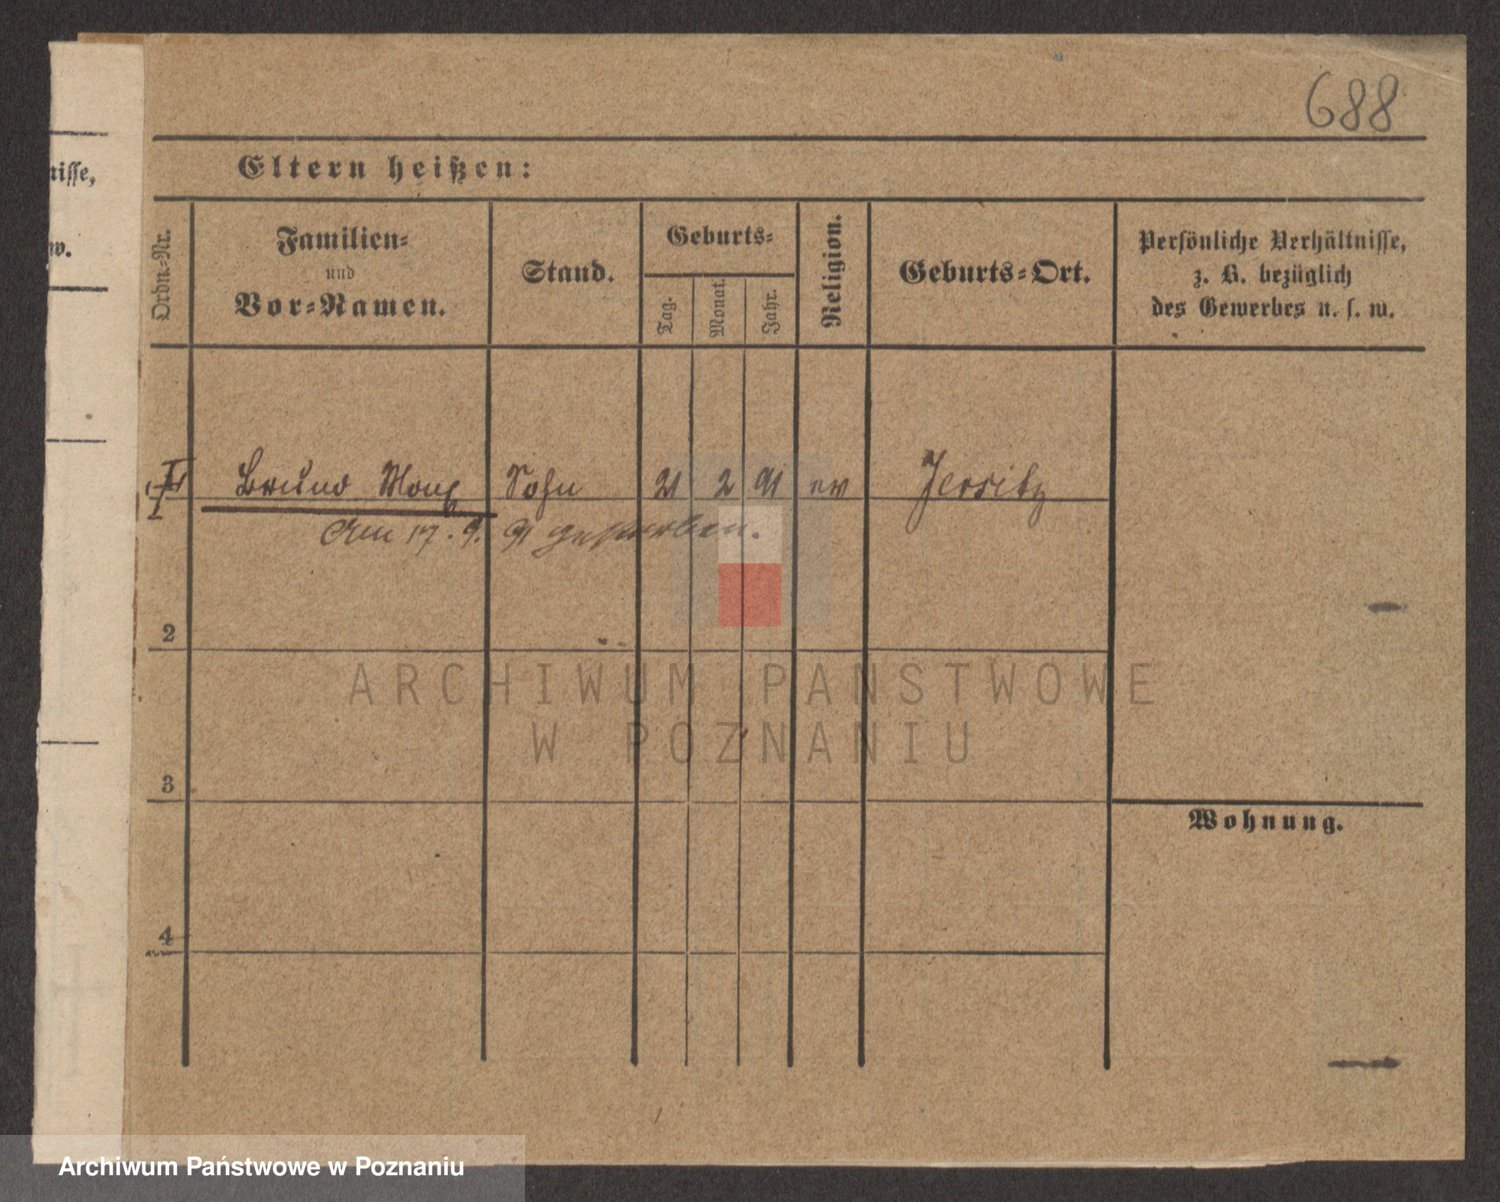 688
nisse,
w.
Eltern heißen:
Ordn.-Nr.
Familien-
und
Vor-Namen.
Stand.
Geburts-
Tag.
Monat.
Jahr.
Religion.
Geburts-Ort.
Persönliche Verhältnisse,
z. B. bezüglich
des Gewerbes u. s. w.
Bruno Max Sohn 21 2 91 ev Jersitz
Am 17. 9. 91 gestorben.
2
3
4
Wohnung.
ARCHIWUM PAŃSTWOWE
W POZNANIU
Archiwum Państwowe w Poznaniu